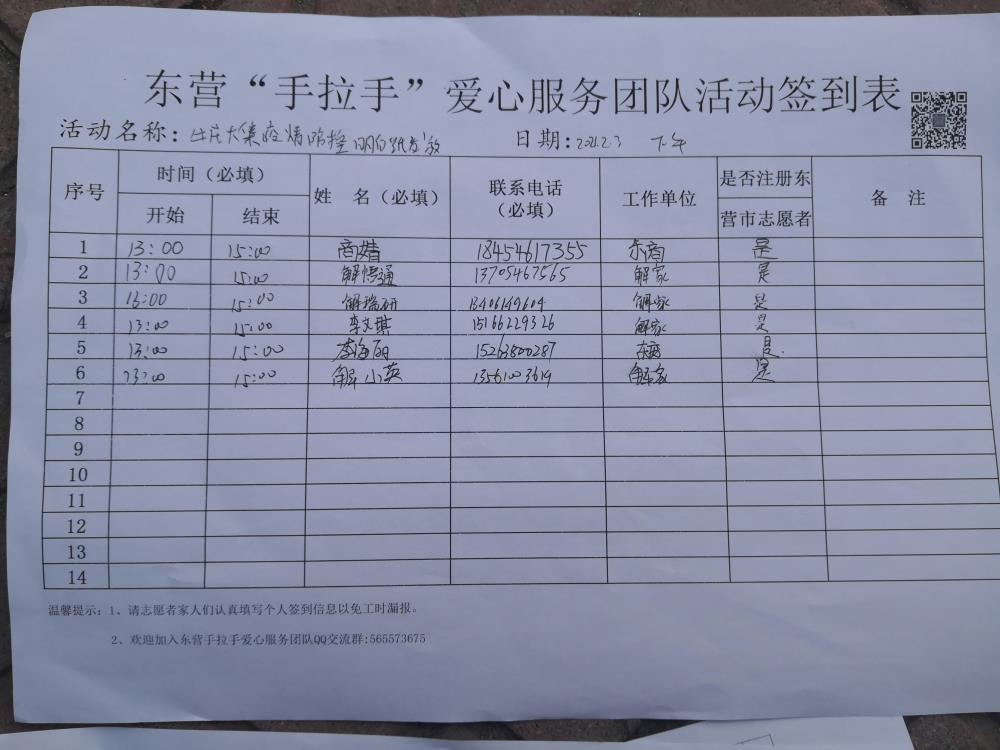 东营“手拉手”爱心服务团队活动签到表
活动名称：牛庄大集疫情防控明白纸发放 日期：2021.2.3 下午
序号 时间（必填） 姓 名（必填） 联系电话（必填） 工作单位 是否注册东营市志愿者 备 注
开始 结束
1 13:00 15:00 商婧 18454617355 东商 是
2 13:00 15:00 解悟通 13705467565 解家 是
3 13:00 15:00 解瑞研 18406149604 解家 是
4 13:00 15:00 李文琪 15166229326 解家 是
5 13:00 15:00 李海丽 15263800287 是
6 13:00 15:00 解小英 13561003619 解家 是
7
8
9
10
11
12
13
14
温馨提示：1、请志愿者家人们认真填写个人签到信息以免工时漏报。
2、欢迎加入东营手拉手爱心服务团队QQ交流群:565573675